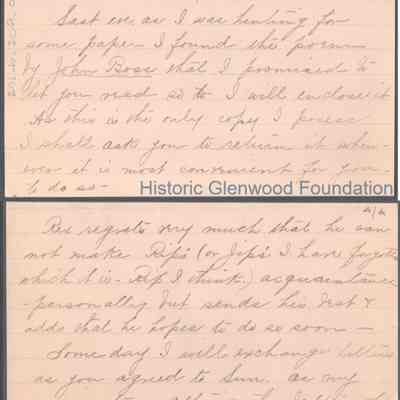 Last eve as I was hunting for
some paper I found the poem
by John Boss that I promised to
let you read so to I will enclose it
As this is the only copy I posess
I shall ask you to return it when-
ever it is most convenient for you
to do so-
Historic Glenwood Foundation
Rex regrets very much that he can
not make Rip's (or Jip's I have forgotten
which it is - Rip I think.) acquaintance
personally but sends his best &
adds that he hopes to do so soon -
Some day I will exchange letters
as you agreed to Sun. as my